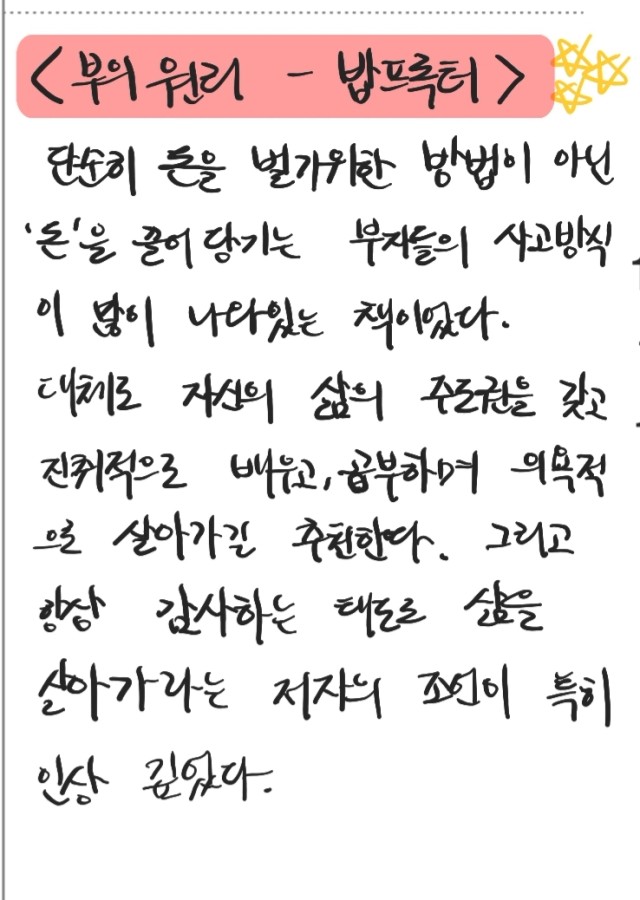 <부의 원리 - 밥프록터>
단순히 돈을 벌기위한 방법이 아닌
'돈'을 끌어 당기는 부자들의 사고방식
이 많이 나와있는 책이었다.
대체로 자신의 삶의 주도권을 갖고
진취적으로 배우고, 공부하며 의욕적
으로 살아가길 추천한다. 그리고
항상 감사하는 태도로 삶을
살아가라는 저자의 조언이 특히
인상 깊었다.